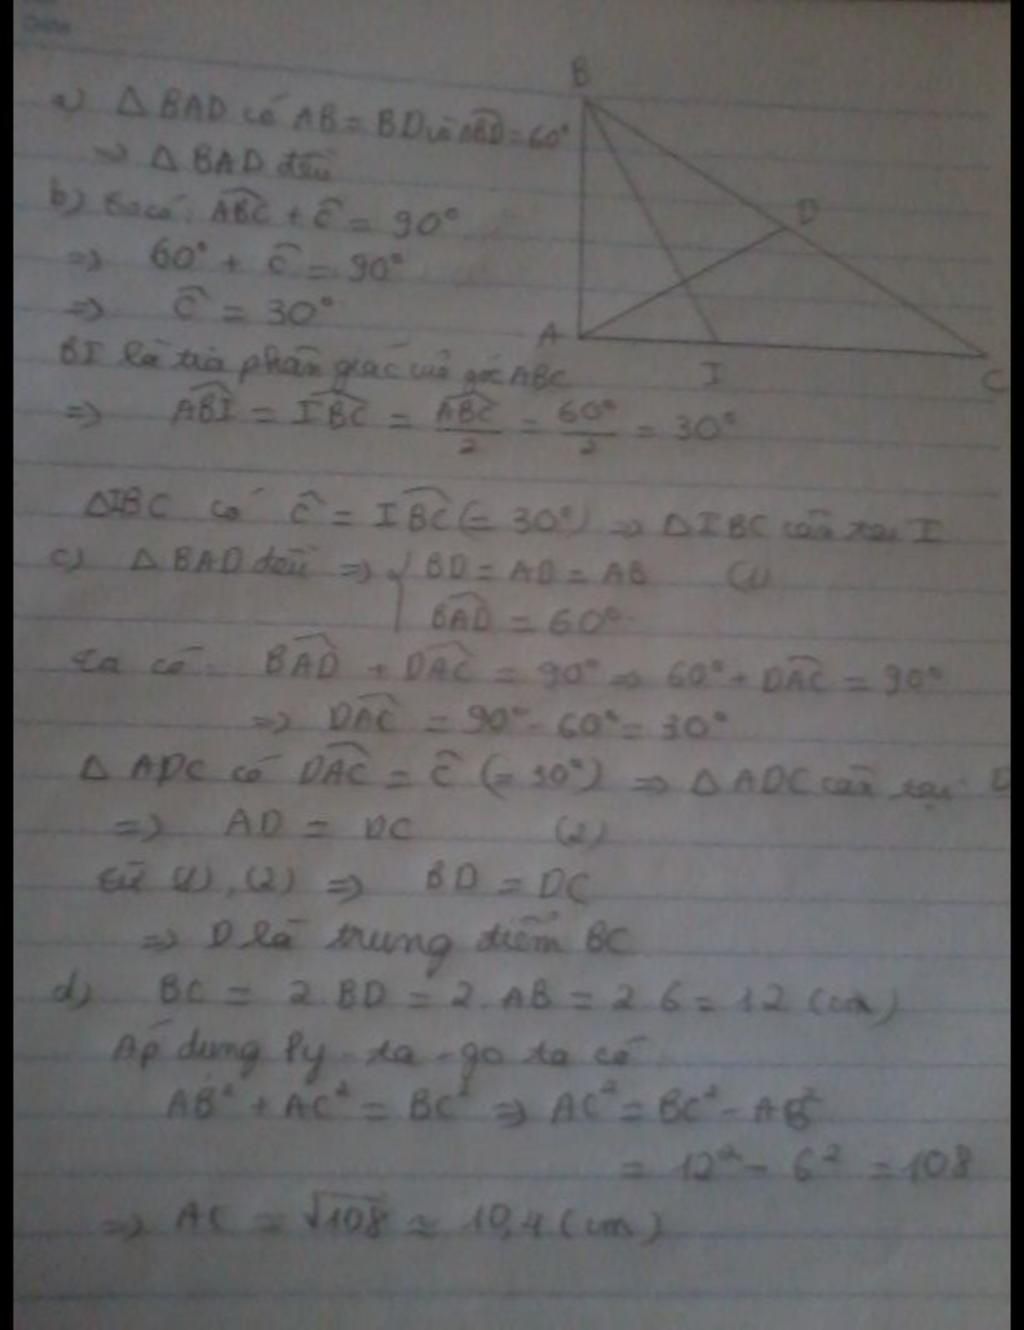 a) △BAD có AB = BD và ABD̂ = 60°
=> △BAD đều
b) Ta có: ABĈ + Ĉ = 90°
=> 60° + Ĉ = 90°
=> Ĉ = 30°
BI là tia phân giác của góc ABC
=> ABÎ = IBĈ = ABĈ/2 = 60°/2 = 30°
△IBC có Ĉ = IBĈ (= 30°) => △IBC cân tại I
c) △BAD đều => { BD = AD = AB (1)
BAD̂ = 60°
Ta có: BAD̂ + DAĈ = 90° => 60° + DAĈ = 90°
=> DAĈ = 90° - 60° = 30°
△ADC có DAĈ = Ĉ (= 30°) => △ADC cân tại D
=> AD = DC (2)
Từ (1), (2) => BD = DC
=> D là trung điểm BC
d) BC = 2 BD = 2. AB = 2 6 = 12 (cm)
Áp dụng Py-ta-go ta có
AB² + AC² = BC² => AC² = BC² - AB²
= 12² - 6² = 108
=> AC = √108 ≈ 10,4 (cm)
B
D
A
I
C